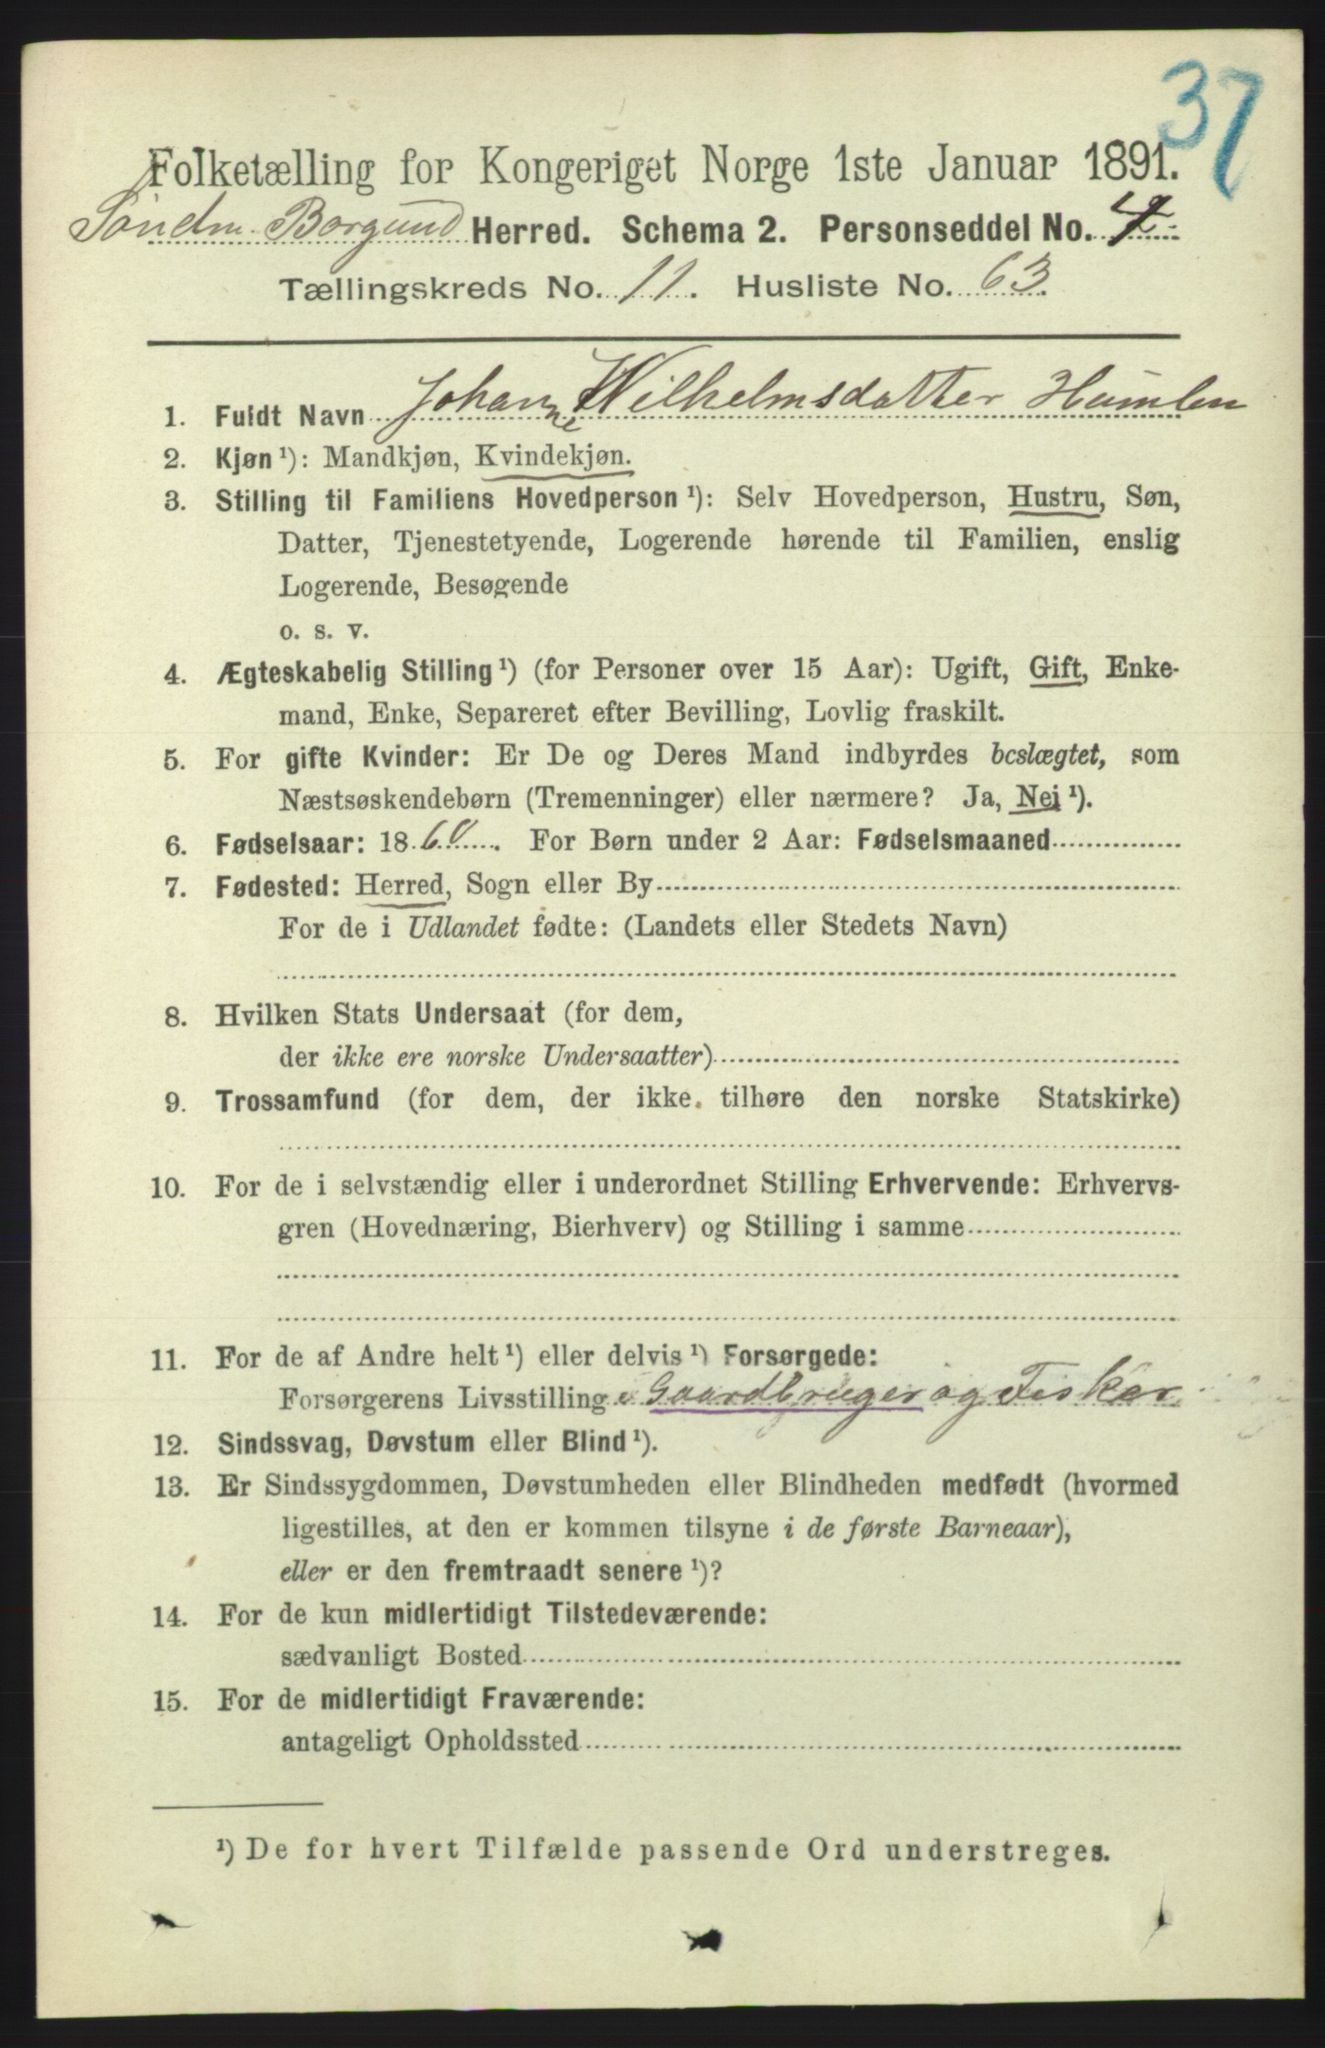 37
Folketælling for Kongeriget Norge 1ste Januar 1891.
Søndm. Borgund Herred. Schema 2. Personseddel No.
Tællingskreds No. 11. Husliste No. 63.
1. Fuldt Navn Johanne Wilhelmsdatter Humlen
2. Kjøn ¹): Mandkjøn, Kvindekjøn.
3. Stilling til Familiens Hovedperson ¹): Selv Hovedperson, Hustru, Søn,
Datter, Tjenestetyende, Logerende hørende til Familien, enslig
Logerende, Besøgende
o. s. v.
4. Ægteskabelig Stilling ¹) (for Personer over 15 Aar): Ugift, Gift, Enke-
mand, Enke, Separeret efter Bevilling, Lovlig fraskilt.
5. For gifte Kvinder: Er De og Deres Mand indbyrdes beslægtet, som
Næstsøskendebørn (Tremenninger) eller nærmere? Ja, Nei ¹).
6. Fødselsaar: 1860. For Børn under 2 Aar: Fødselsmaaned
7. Fødested: Herred, Sogn eller By
For de i Udlandet fødte: (Landets eller Stedets Navn)
8. Hvilken Stats Undersaat (for dem,
der ikke ere norske Undersaatter)
9. Trossamfund (for dem, der ikke tilhøre den norske Statskirke)
10. For de i selvstændig eller i underordnet Stilling Erhvervende: Erhvervs-
gren (Hovednæring, Bierhverv) og Stilling i samme
11. For de af Andre helt ¹) eller delvis ¹) Forsørgede:
Forsørgerens Livsstilling Gaardbruger og Fisker
12. Sindssvag, Døvstum eller Blind ¹).
13. Er Sindssygdommen, Døvstumheden eller Blindheden medfødt (hvormed
ligestilles, at den er kommen tilsyne i de første Barneaar),
eller er den fremtraadt senere ¹)?
14. For de kun midlertidigt Tilstedeværende:
sædvanligt Bosted
15. For de midlertidigt Fraværende:
antageligt Opholdssted
¹) De for hvert Tilfælde passende Ord understreges.